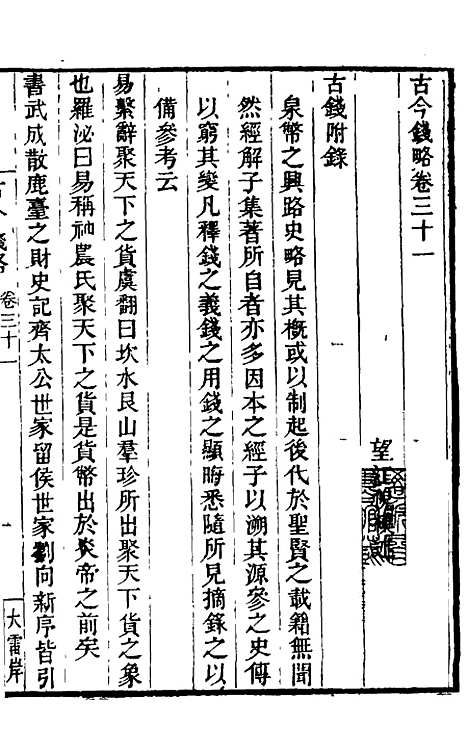 古今錢略卷三十一
望
古錢附錄
泉幣之興路史略見其概或以制起後代於聖賢之載籍無聞
然經解子集著所自者亦多因本之經子以溯其源參之史傳
以窮其變凡釋錢之義錢之用錢之顯晦悉隨所見摘錄之以
備參考云
易繫辭聚天下之貨虞翻曰坎水艮山羣珍所出聚天下貨之象
也羅泌曰易稱神農氏聚天下之貨是貨幣出於炎帝之前矣
書武成散鹿臺之財史記齊太公世家留侯世家劉向新序皆引
古今錢略
卷三十一
一
大雷岸